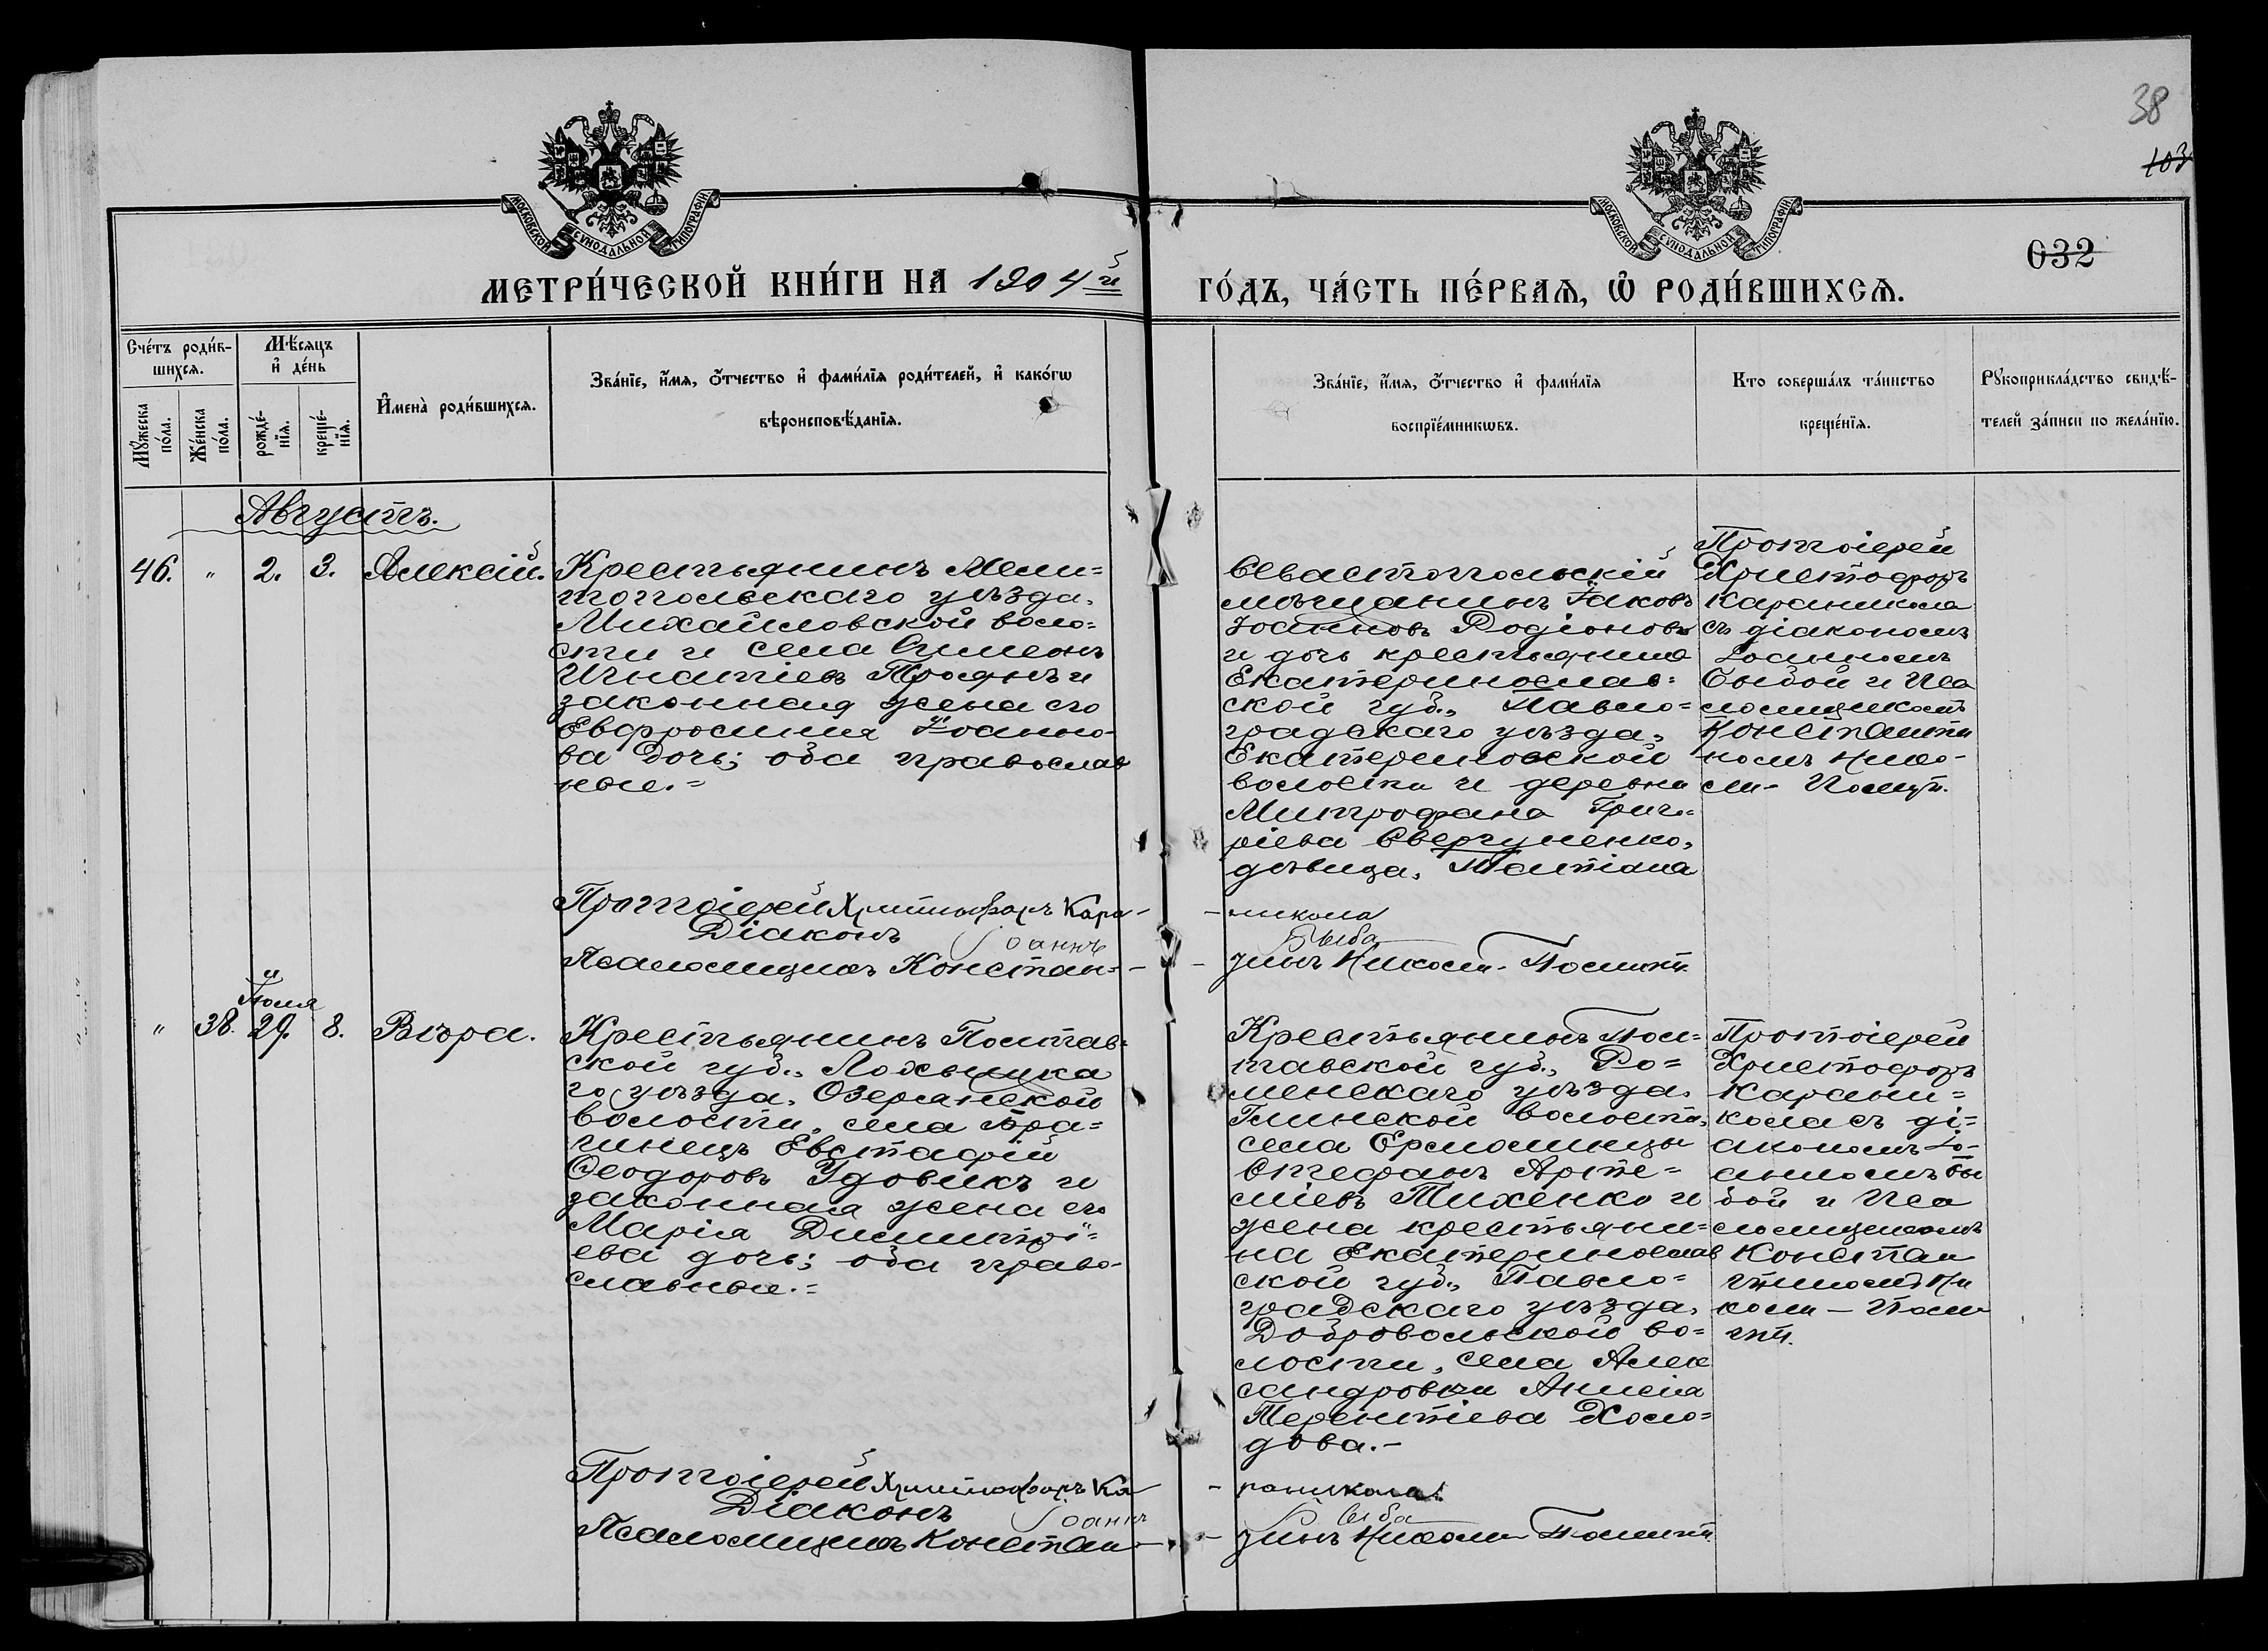 38
103
032
МОСКОВСКОЙ СѴНОДАЛЬНОЙ ТИПОГРАФІИ.
МОСКОВСКОЙ СѴНОДАЛЬНОЙ ТИПОГРАФІИ.
МЕТРИ́ЧЕСКОЙ КНИ́ГИ НА 1904й ГО́ДЪ, ЧА́СТЬ ПЕ́РВАЯ, Ѡ҆ РОДИ́ВШИХСЯ.
Сче́тъ роди́в-
шихся.
Мꙋ́жеска
по́ла.
Же́нска
по́ла.
Мѣ́сяцъ
и҆ де́нь
рожде́-
нїя.
креще́-
нїя.
И҆мена̀ роди́вшихся.
Зва́нїе, и҆́мя, ѻ҆́тчество и҆ фами́лїя роди́телей, и҆ како́гѡ
вѣроисповѣ́данїя.
Зва́нїе, и҆́мя, ѻ҆́тчество и҆ фами́лїя
воспрїе́мникѡвъ.
Кто соверша́лъ та́инство
креще́нїя.
Рꙋкоприкла́дство свидѣ́-
телей за́писи по жела́нїю.
Августъ.
46. " 2. 3. Алексій.
Крестьянинъ Мели=
топольскаго уѣзда,
Михайловской воло=
сти и села Симеонъ
Игнатіевъ Проянъ и
законная жена его
Евфросинія Іоанно-
ва дочь; оба православ
ные.=
Севастопольскій
мѣщанинъ Іаковъ
Іоанновъ Родіоновъ
и дочь крестьянина
Екатеринослав=
ской губ., Павло=
градскаго уѣзда,
Екатериновской
волости и деревни
Митрофана Григо=
ріева Свергуненко,
дѣвица, Татіана
Протоіерей
Христофоръ
Караникола
съ діакономъ
Іоанномъ
Быбой и Пса
ломщикомъ
Константи
номъ Нико-
ли- Полит.
Протоіерей Христофоръ Кара-
-никола
Діаконъ Іоаннъ
Быба
Псаломщикъ Констан-
- тинъ Николи-Полити.
Іюля
" 38. 29. 8. Вѣра.
Крестьянинъ Полтав=
ской губ., Лохвицка
го уѣзда, Озерянской
волости, села Бра=
гинецъ Евстафій
Ѳеодоровъ Удовикъ и
законная жена его
Марія Димитрі=
ева дочь; оба право-
славные.=
Крестьянинъ Пол=
тавской губ., Ро=
менскаго уѣзда,
Глинской волости,
села Ярмолинцы
Стефанъ Арте=
міевъ Тихенко и
жена крестьяни=
на Екатеринослав
ской губ., Павло=
градскаго уѣзда,
Добровольской во=
лости, села Алек
сандровки Анисія
Терентіева Холо=
дова.-
Протоіерей
Христофоръ
Карани=
кола съ ді=
акономъ Іо-
анномъ Бы
бой и Пса
ломщикомъ
Констан
тиномъ Ни
коли - Поли
ти.
Протоіерей Христофоръ Ка
- раникола.
Діаконъ Іоаннъ
Быба
Псаломщикъ Констан-
- тинъ Николи Полити.